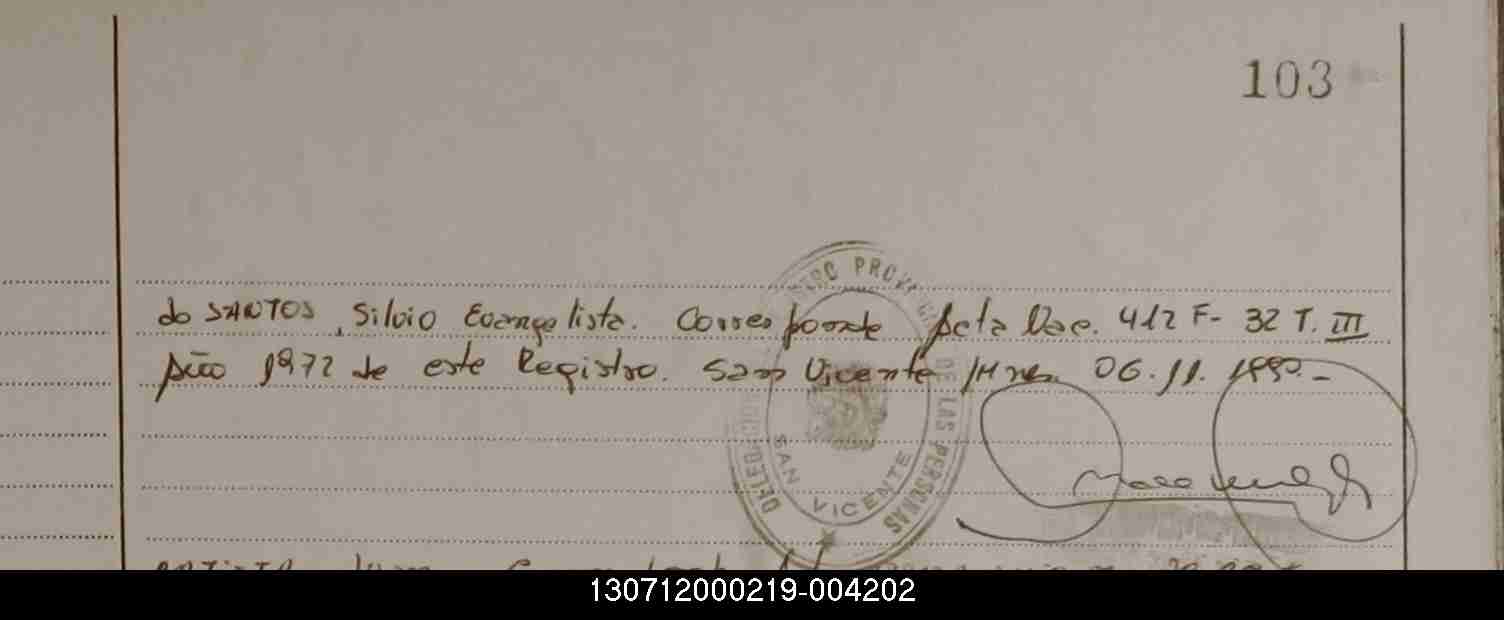 103
do SANTOS, Silvio Evangelista. Corresponde Acta Nac. 412 F- 32 T. III
Año 1972 de este Registro. San Vicente Mnes. 06.11.1990.-
PROV
DE LAS PERSONAS
SAN VICENTE
130712000219-004202